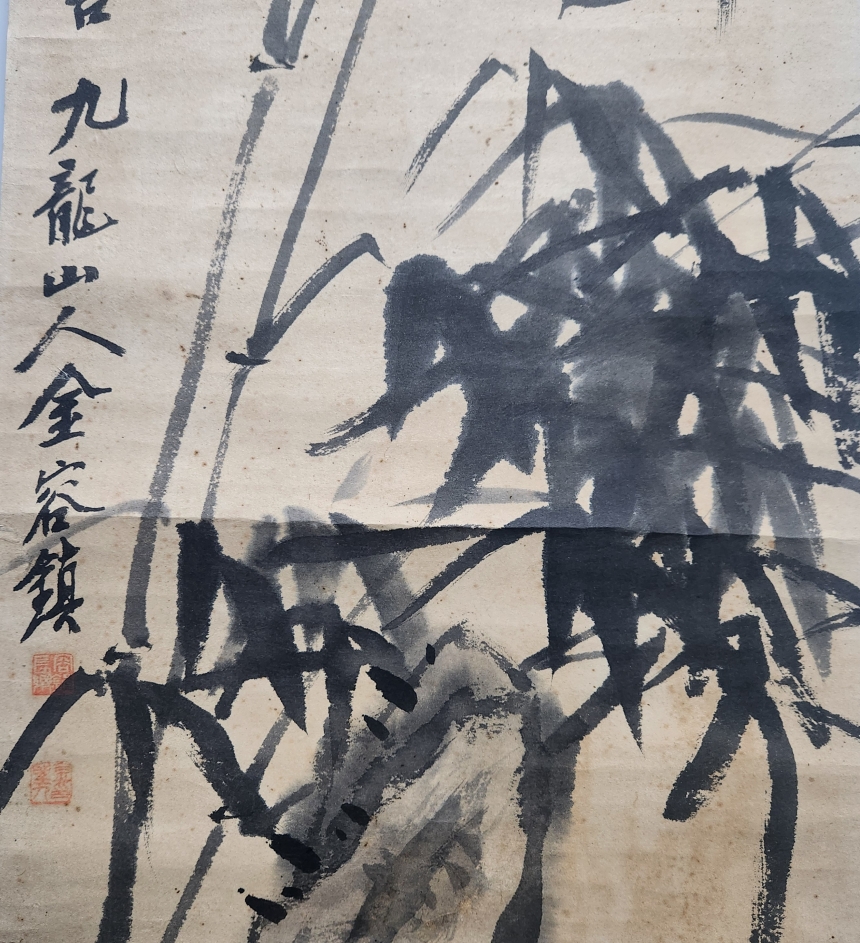 九龍山人金容鎮